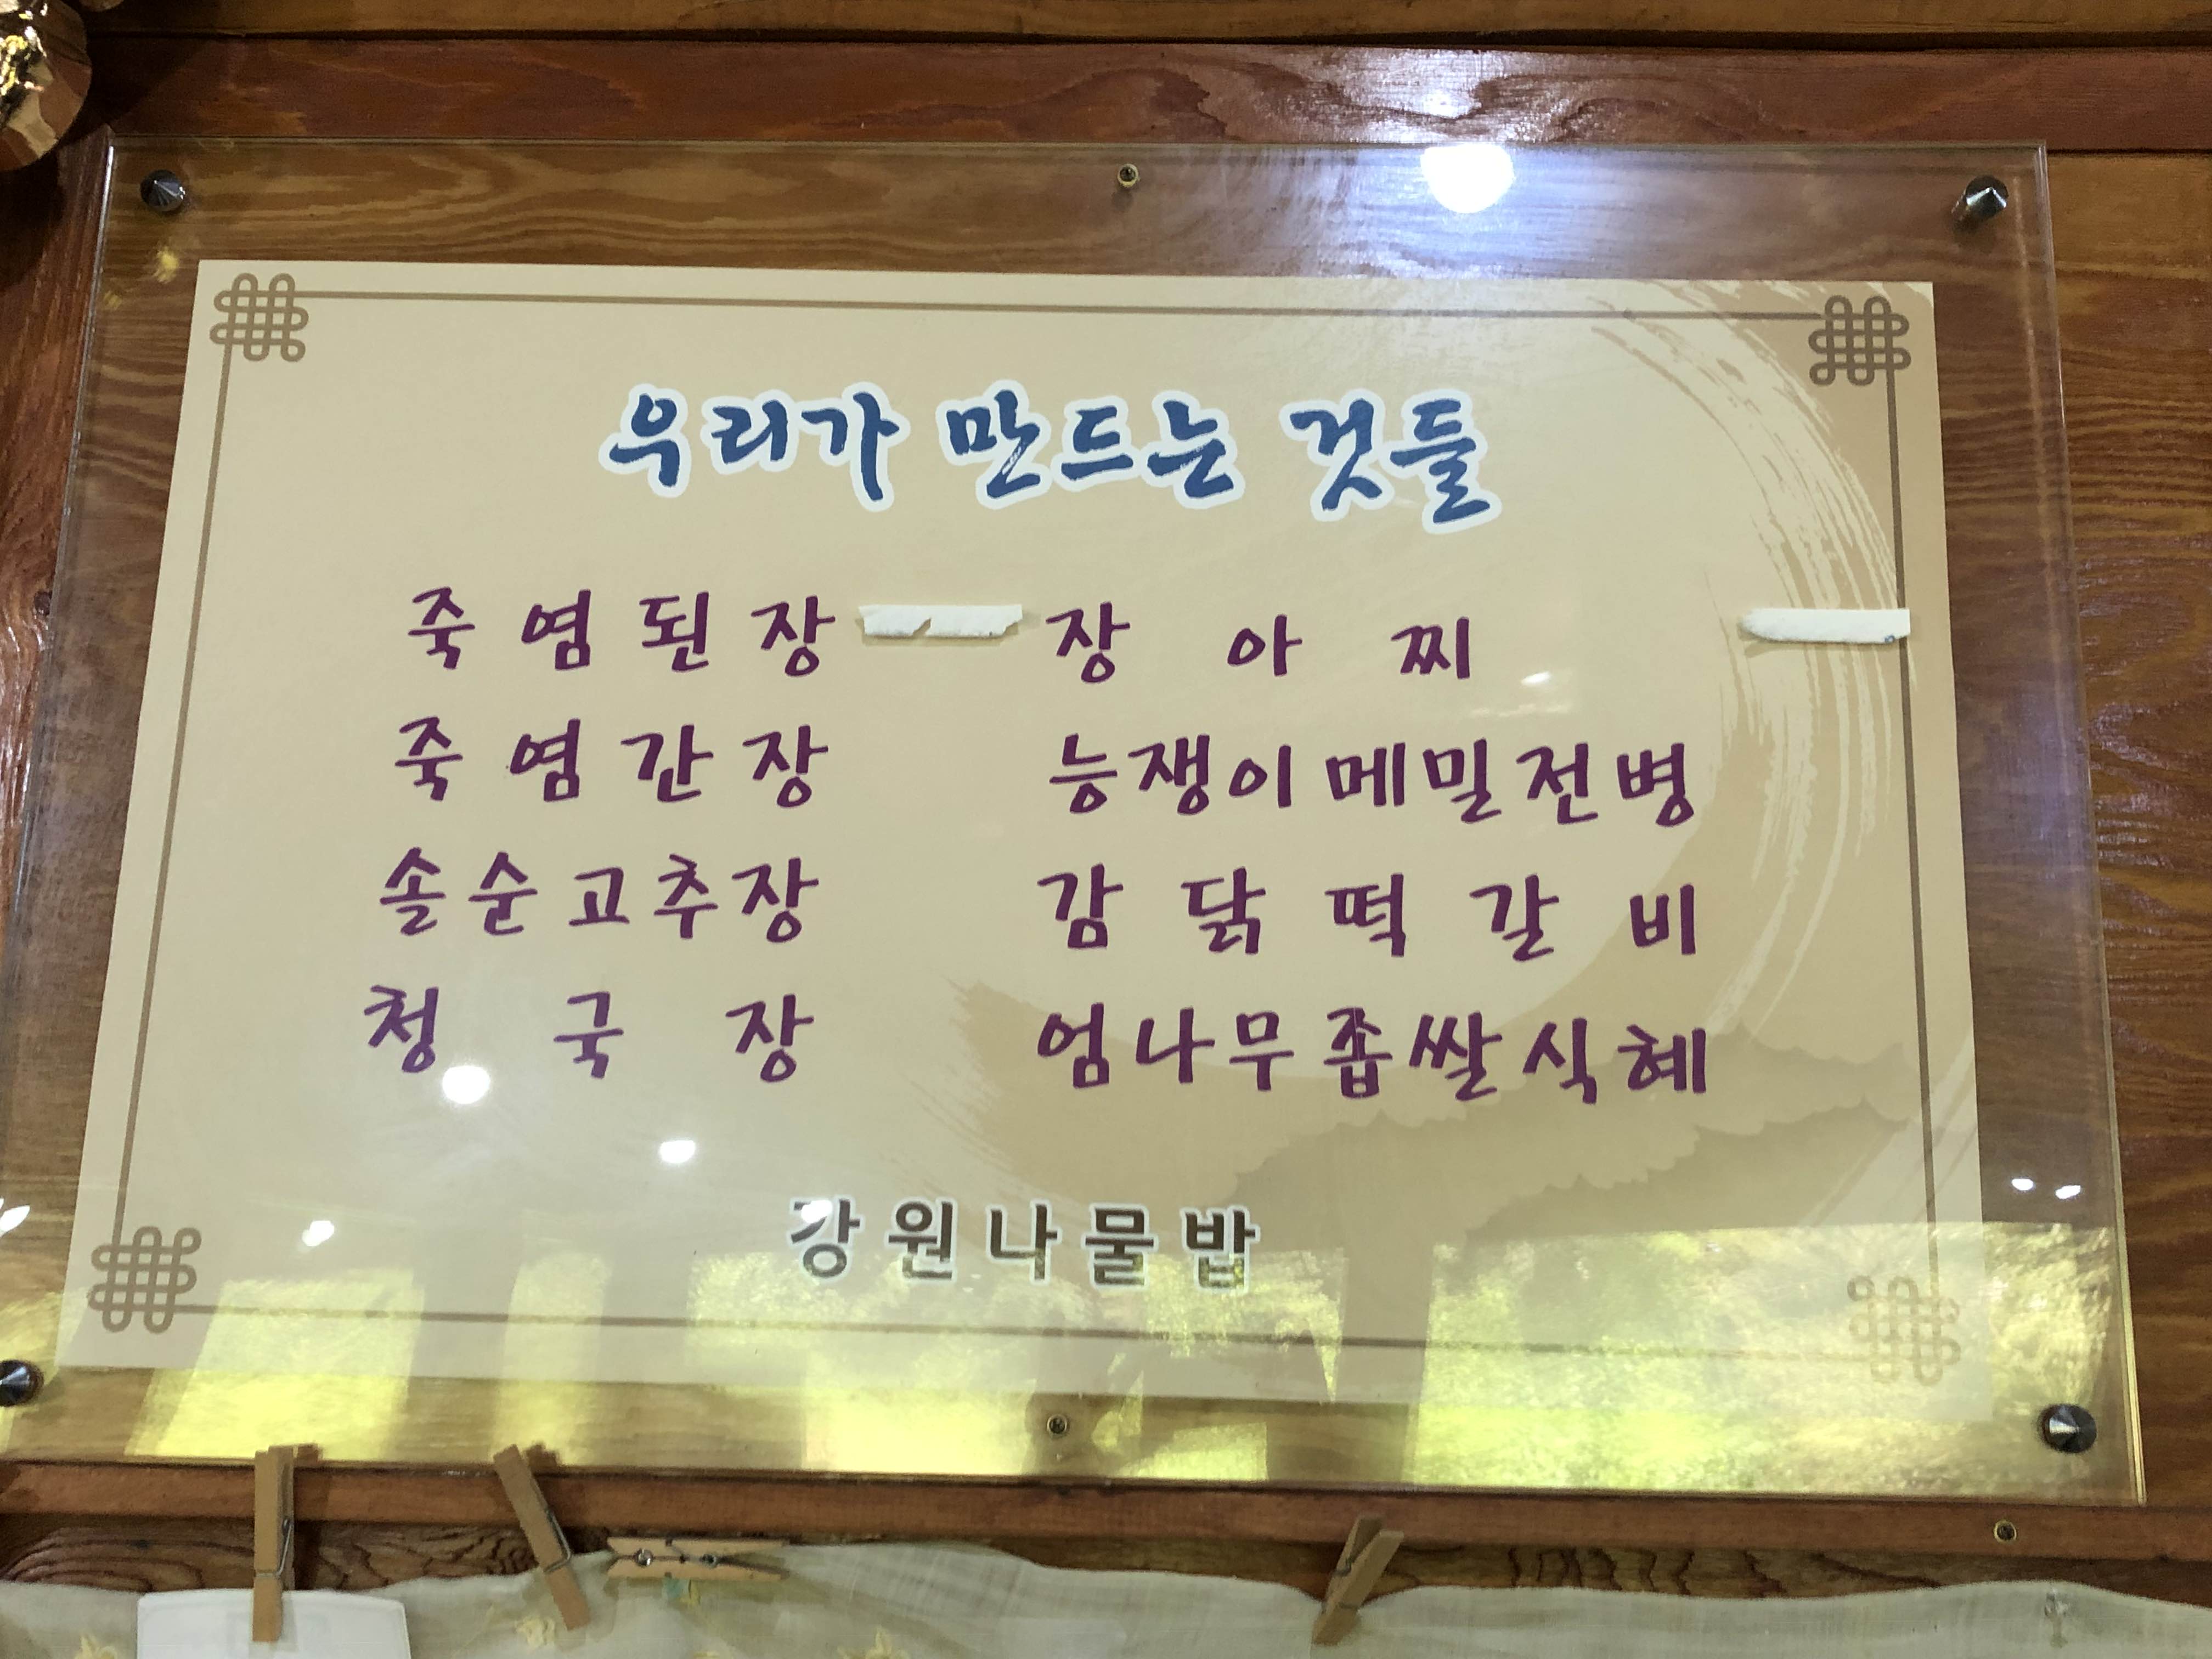 우리가 만드는 것들
죽염된장
죽염간장
솔순고추장
청국장
장아찌
능쟁이메밀전병
감닭떡갈비
엄나무좁쌀식혜
강원나물밥